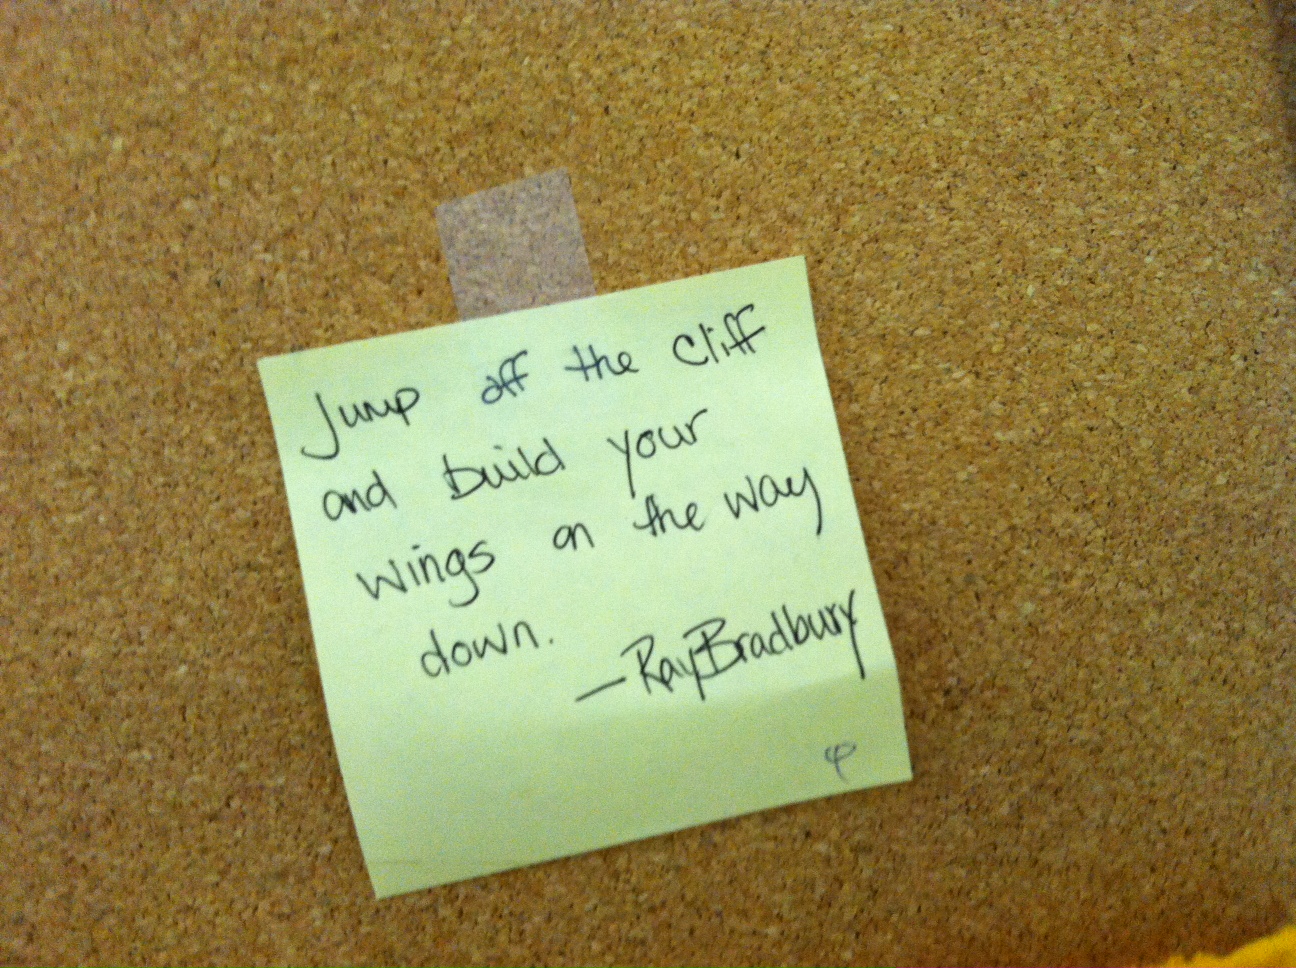 Jump off the Cliff
and build your
wings on the way
down.
—Ray Bradbury
φ